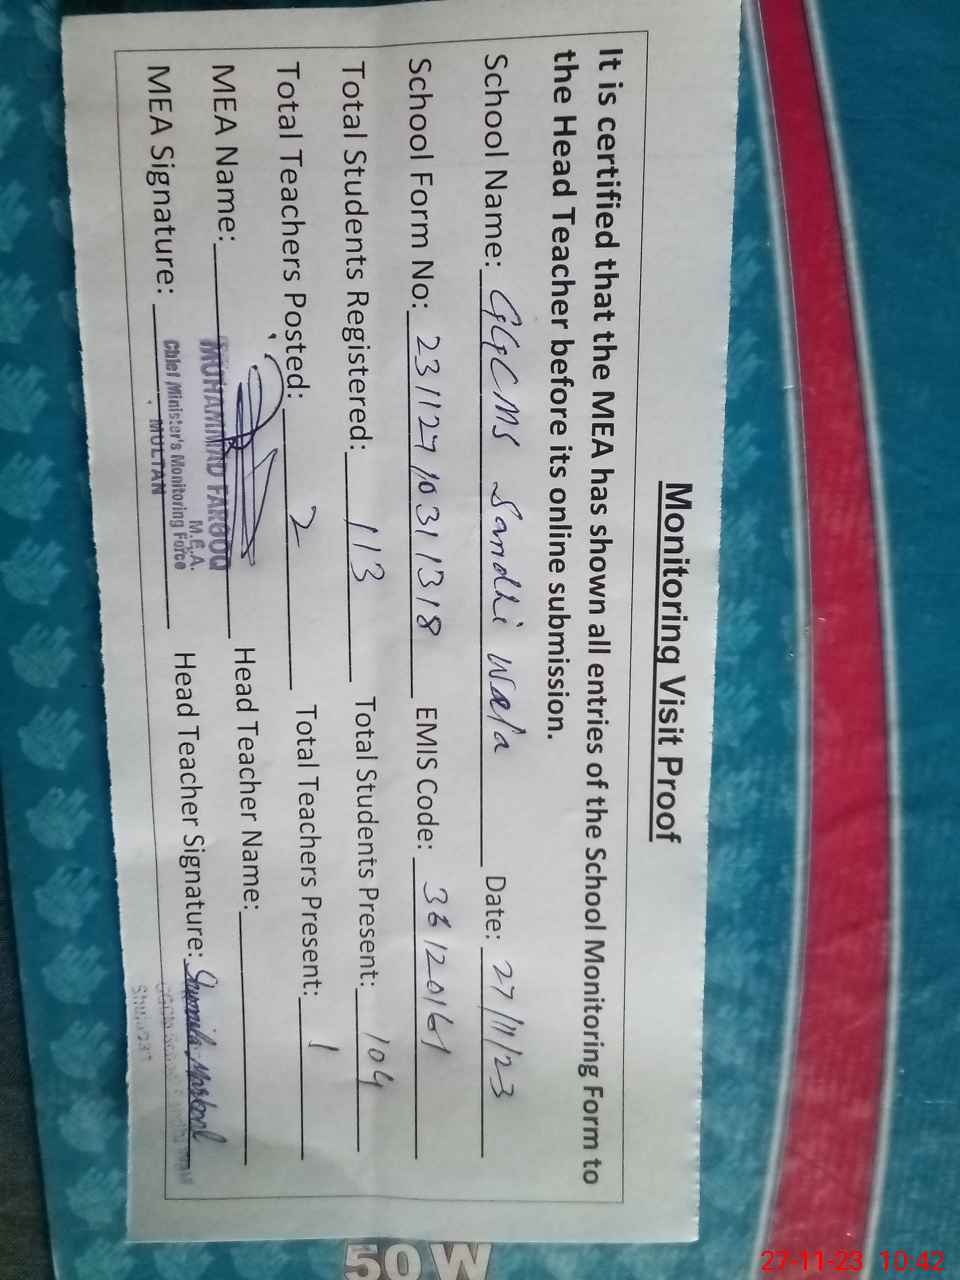 Monitoring Visit Proof
It is certified that the MEA has shown all entries of the School Monitoring Form to
the Head Teacher before its online submission.
School Name: GGCMS Sandhi Wala Date: 27/11/23
School Form No: 23112710311318 EMIS Code: 36120161
Total Students Registered: 113 Total Students Present: 104
Total Teachers Posted: 2 Total Teachers Present: 1
MEA Name: Head Teacher Name:
MUHAMMAD FAROOQ
M.E.A.
MEA Signature: Head Teacher Signature:
Chief Minister's Monitoring Force
MULTAN
50W
27-11-23 10:42